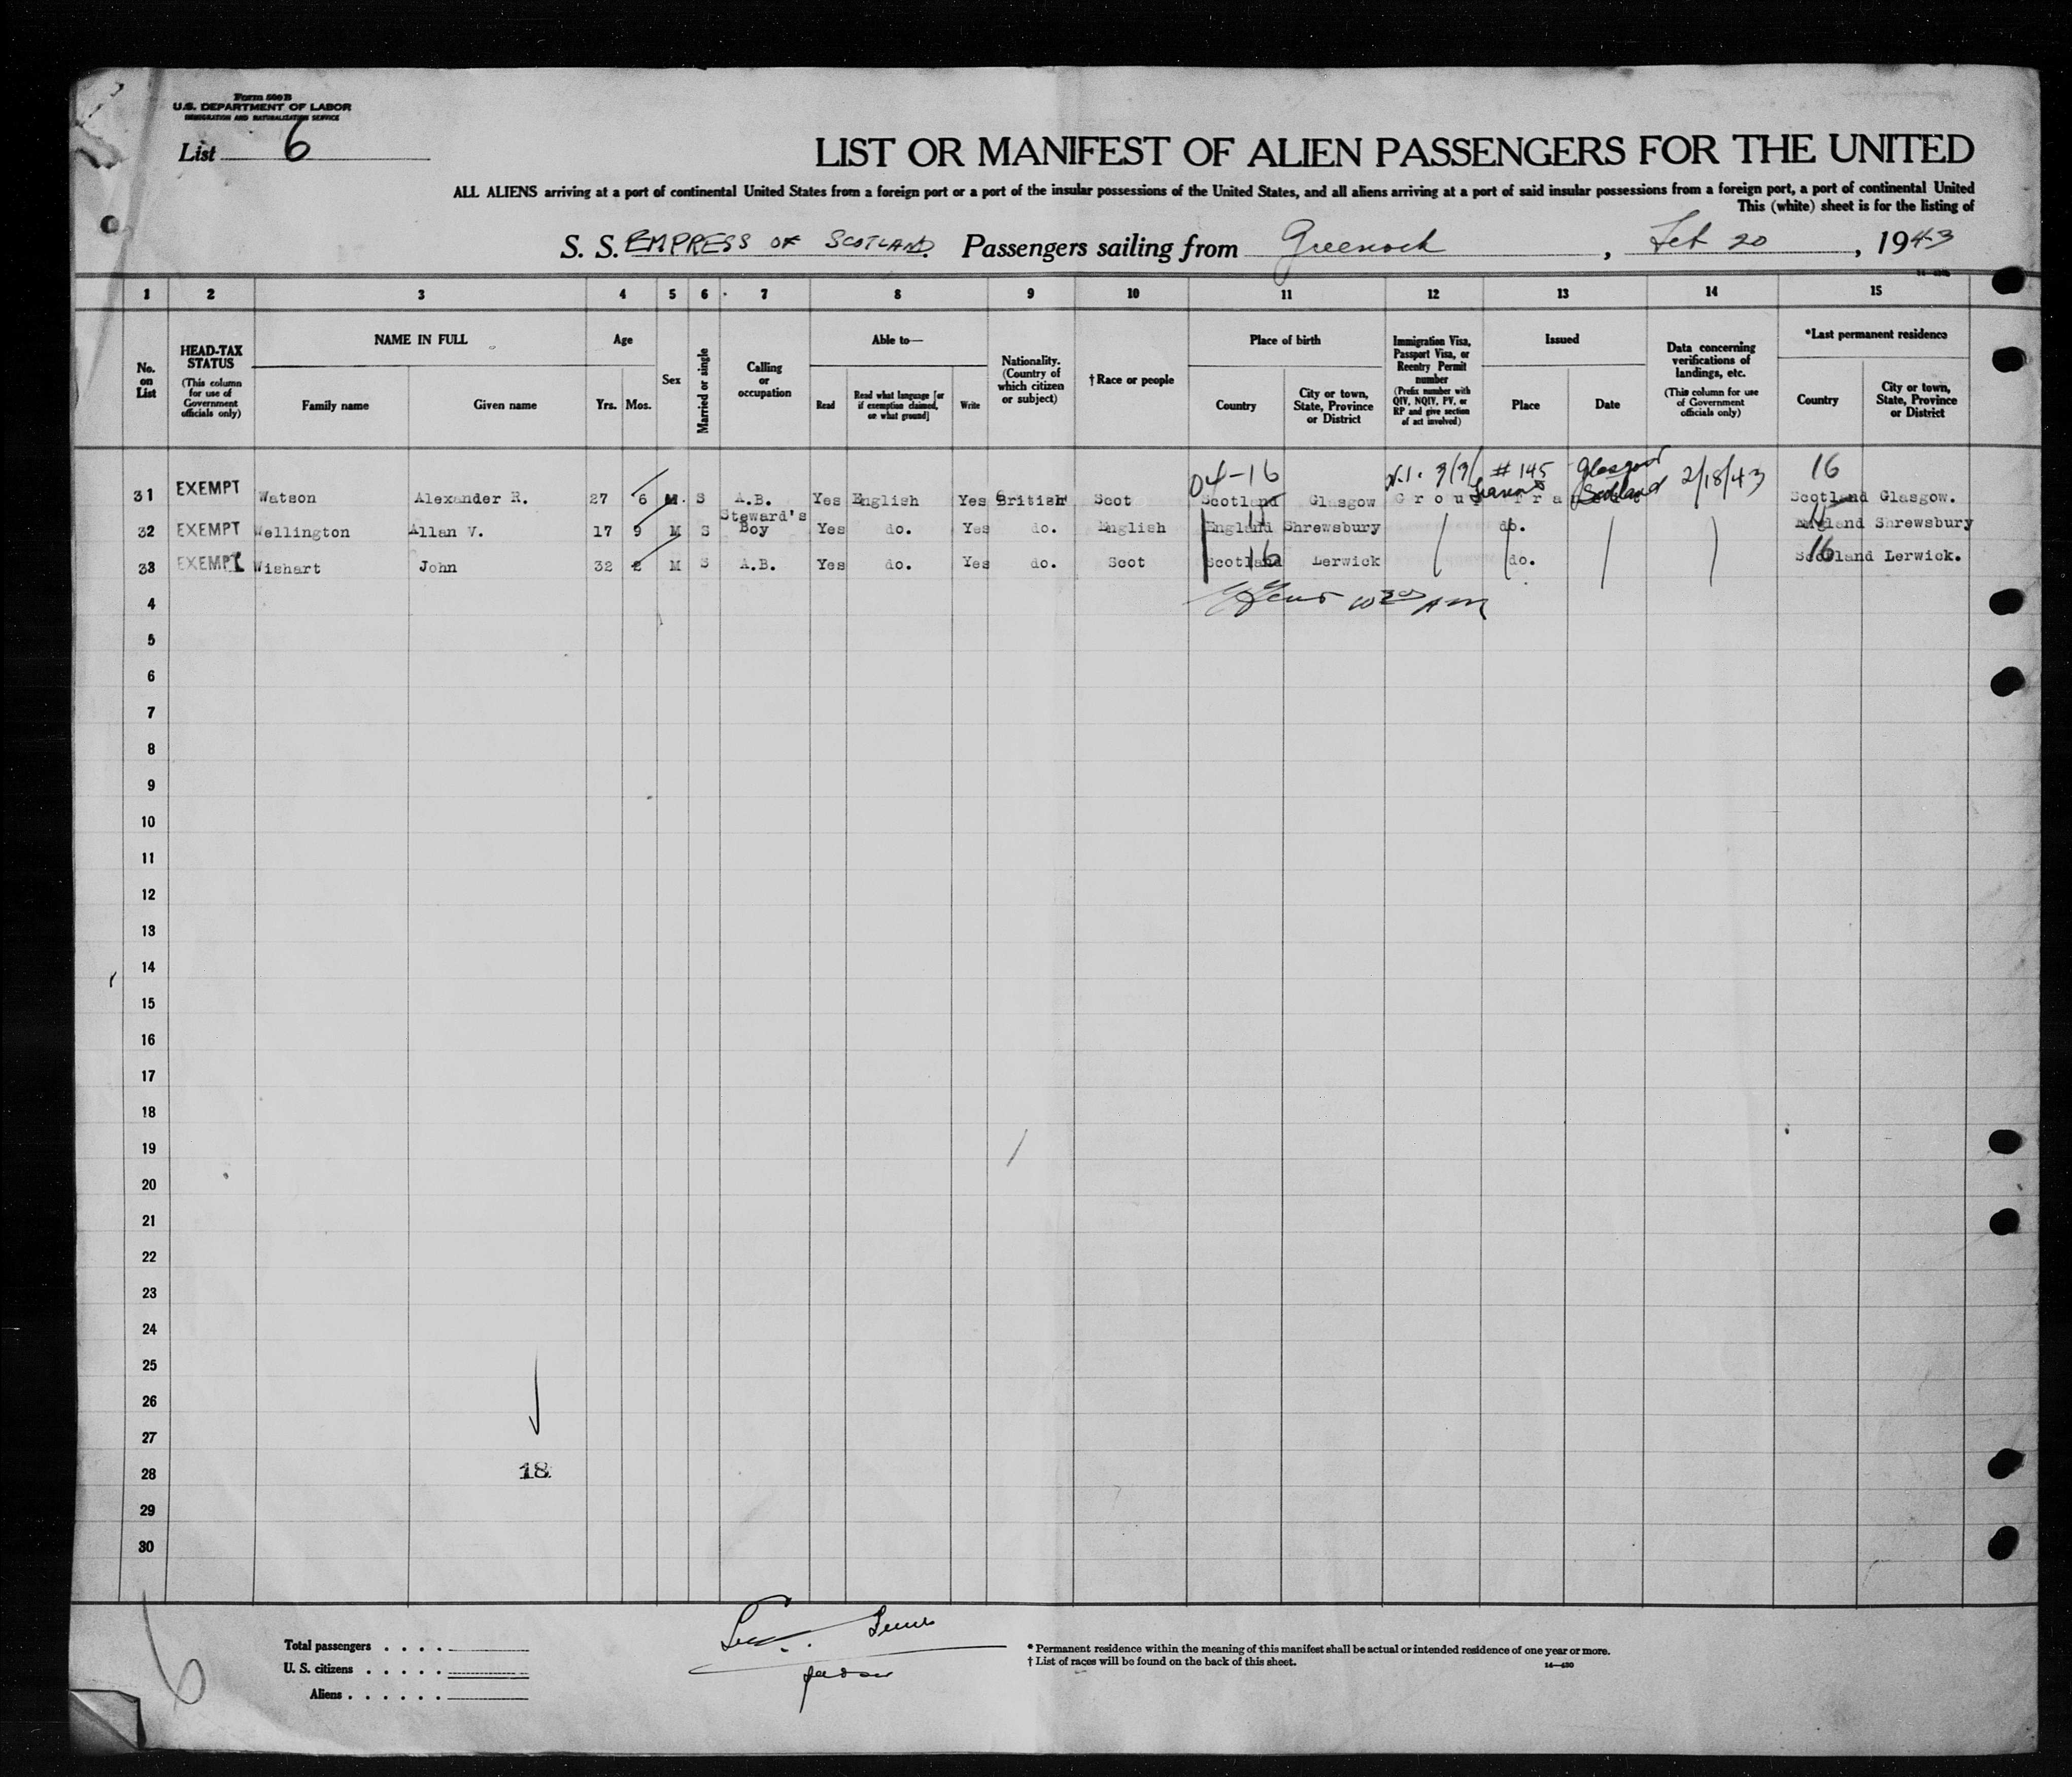 Form 500 B
U.S. DEPARTMENT OF LABOR
IMMIGRATION AND NATURALIZATION SERVICE
List 6
LIST OR MANIFEST OF ALIEN PASSENGERS FOR THE UNITED
ALL ALIENS arriving at a port of continental United States from a foreign port or a port of the insular possessions of the United States, and all aliens arriving at a port of said insular possessions from a foreign port, a port of continental United
This (white) sheet is for the listing of
S. S. EMPRESS OF SCOTLAND. Passengers sailing from Greenock, Feb 20, 1943
1 2 3 4 5 6 7 8 9 10 11 12 13 14 15
No. on List
HEAD-TAX STATUS (This column for use of Government officials only)
NAME IN FULL
Family name Given name
Age
Yrs. Mos.
Sex
Married or single
Calling or occupation
Able to—
Read Read what language [or if exemption claimed, on what ground] Write
Nationality. (Country of which citizen or subject)
†Race or people
Place of birth
Country City or town, State, Province or District
Immigration Visa, Passport Visa, or Reentry Permit number (Prefix number with QIV, NQIV, PV, or RP and give section of act involved)
Issued
Place Date
Data concerning verifications of landings, etc. (This column for use of Government officials only)
*Last permanent residence
Country City or town, State, Province or District
04-16 3/3/ #145 Glasgow Scotland 2/18/43 16
31 EXEMPT Watson Alexander R. 27 6 M. S A.B. Yes English Yes British Scot Scotland Glasgow Scotland Glasgow.
32 EXEMPT Wellington Allan V. 17 9 M S Steward's Boy Yes do. Yes do. English England Shrewsbury do. England Shrewsbury
33 EXEMPT Wishart John 32 2 M S A.B. Yes do. Yes do. Scot Scotland Lerwick do. Scotland Lerwick.
16 16
4
5
6
7
8
9
10
11
12
13
14
15
16
17
18
19
20
21
22
23
24
25
26
27
28 18
29
30
6
Total passengers . . . .
U. S. citizens . . . . .
Aliens . . . . . .
* Permanent residence within the meaning of this manifest shall be actual or intended residence of one year or more.
† List of races will be found on the back of this sheet.